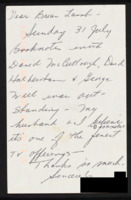 Dear Brian Lamb -
Sunday 31 July
Booknotes with
David McCullough, David
Halberstam & George
Will was out
standing - My
husband and I believe
it's one of the finest
TV offerings -
Thanks so much.
Sincerely